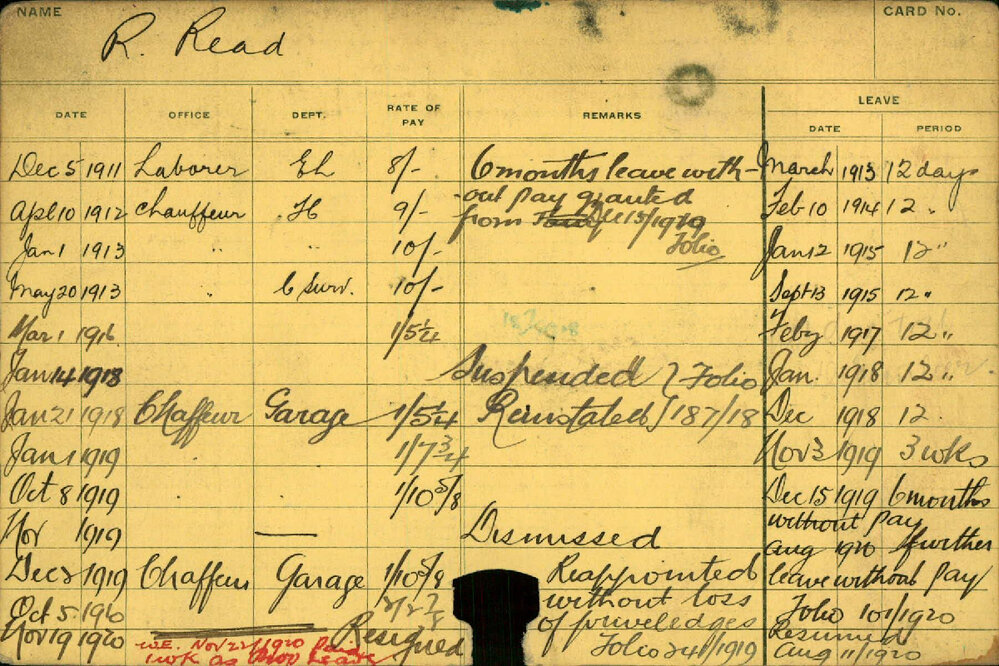 NAME
CARD No.
R. Read
DATE OFFICE DEPT. RATE OF PAY REMARKS LEAVE
DATE PERIOD
Dec 5 1911 Laborer EL 8/- 6 months leave with- March 1913 12 days
out pay granted
Apl 10 1912 Chauffeur H 9/- from Dec 15/1919 Feb 10 1914 12 "
Jan 1 1913 " " 10/- Folio Jan 12 1915 12 "
May 20 1913 " C Surv. 10/- Sept 13 1915 12 "
Mar 1 1916 1/5¼ Feby 1917 12 "
Jan 14 1918 Suspended } Folio Jan. 1918 12 "
Jan 21 1918 Chaffeur Garage 1/5¼ Reinstated } 187/18 Dec 1918 12
Jan 1 1919 1/7¾ Nov 3 1919 3 wks
Oct 8 1919 1/10⅝ Dec 15 1919 6 months
without pay
Nov 1919 — Dismissed Aug 1920 further
Dec 2 1919 Chaffeur Garage 1/10⅝ Reappointed leave without pay
Oct 5 1920 2/2⅞ without loss Folio 101/1920
Nov 19 1920 Resigned of priveledges Resumed
W.E. Nov 22/1920 Paid Folio 241/1919 Aug 11/1920
1 wk as Leave